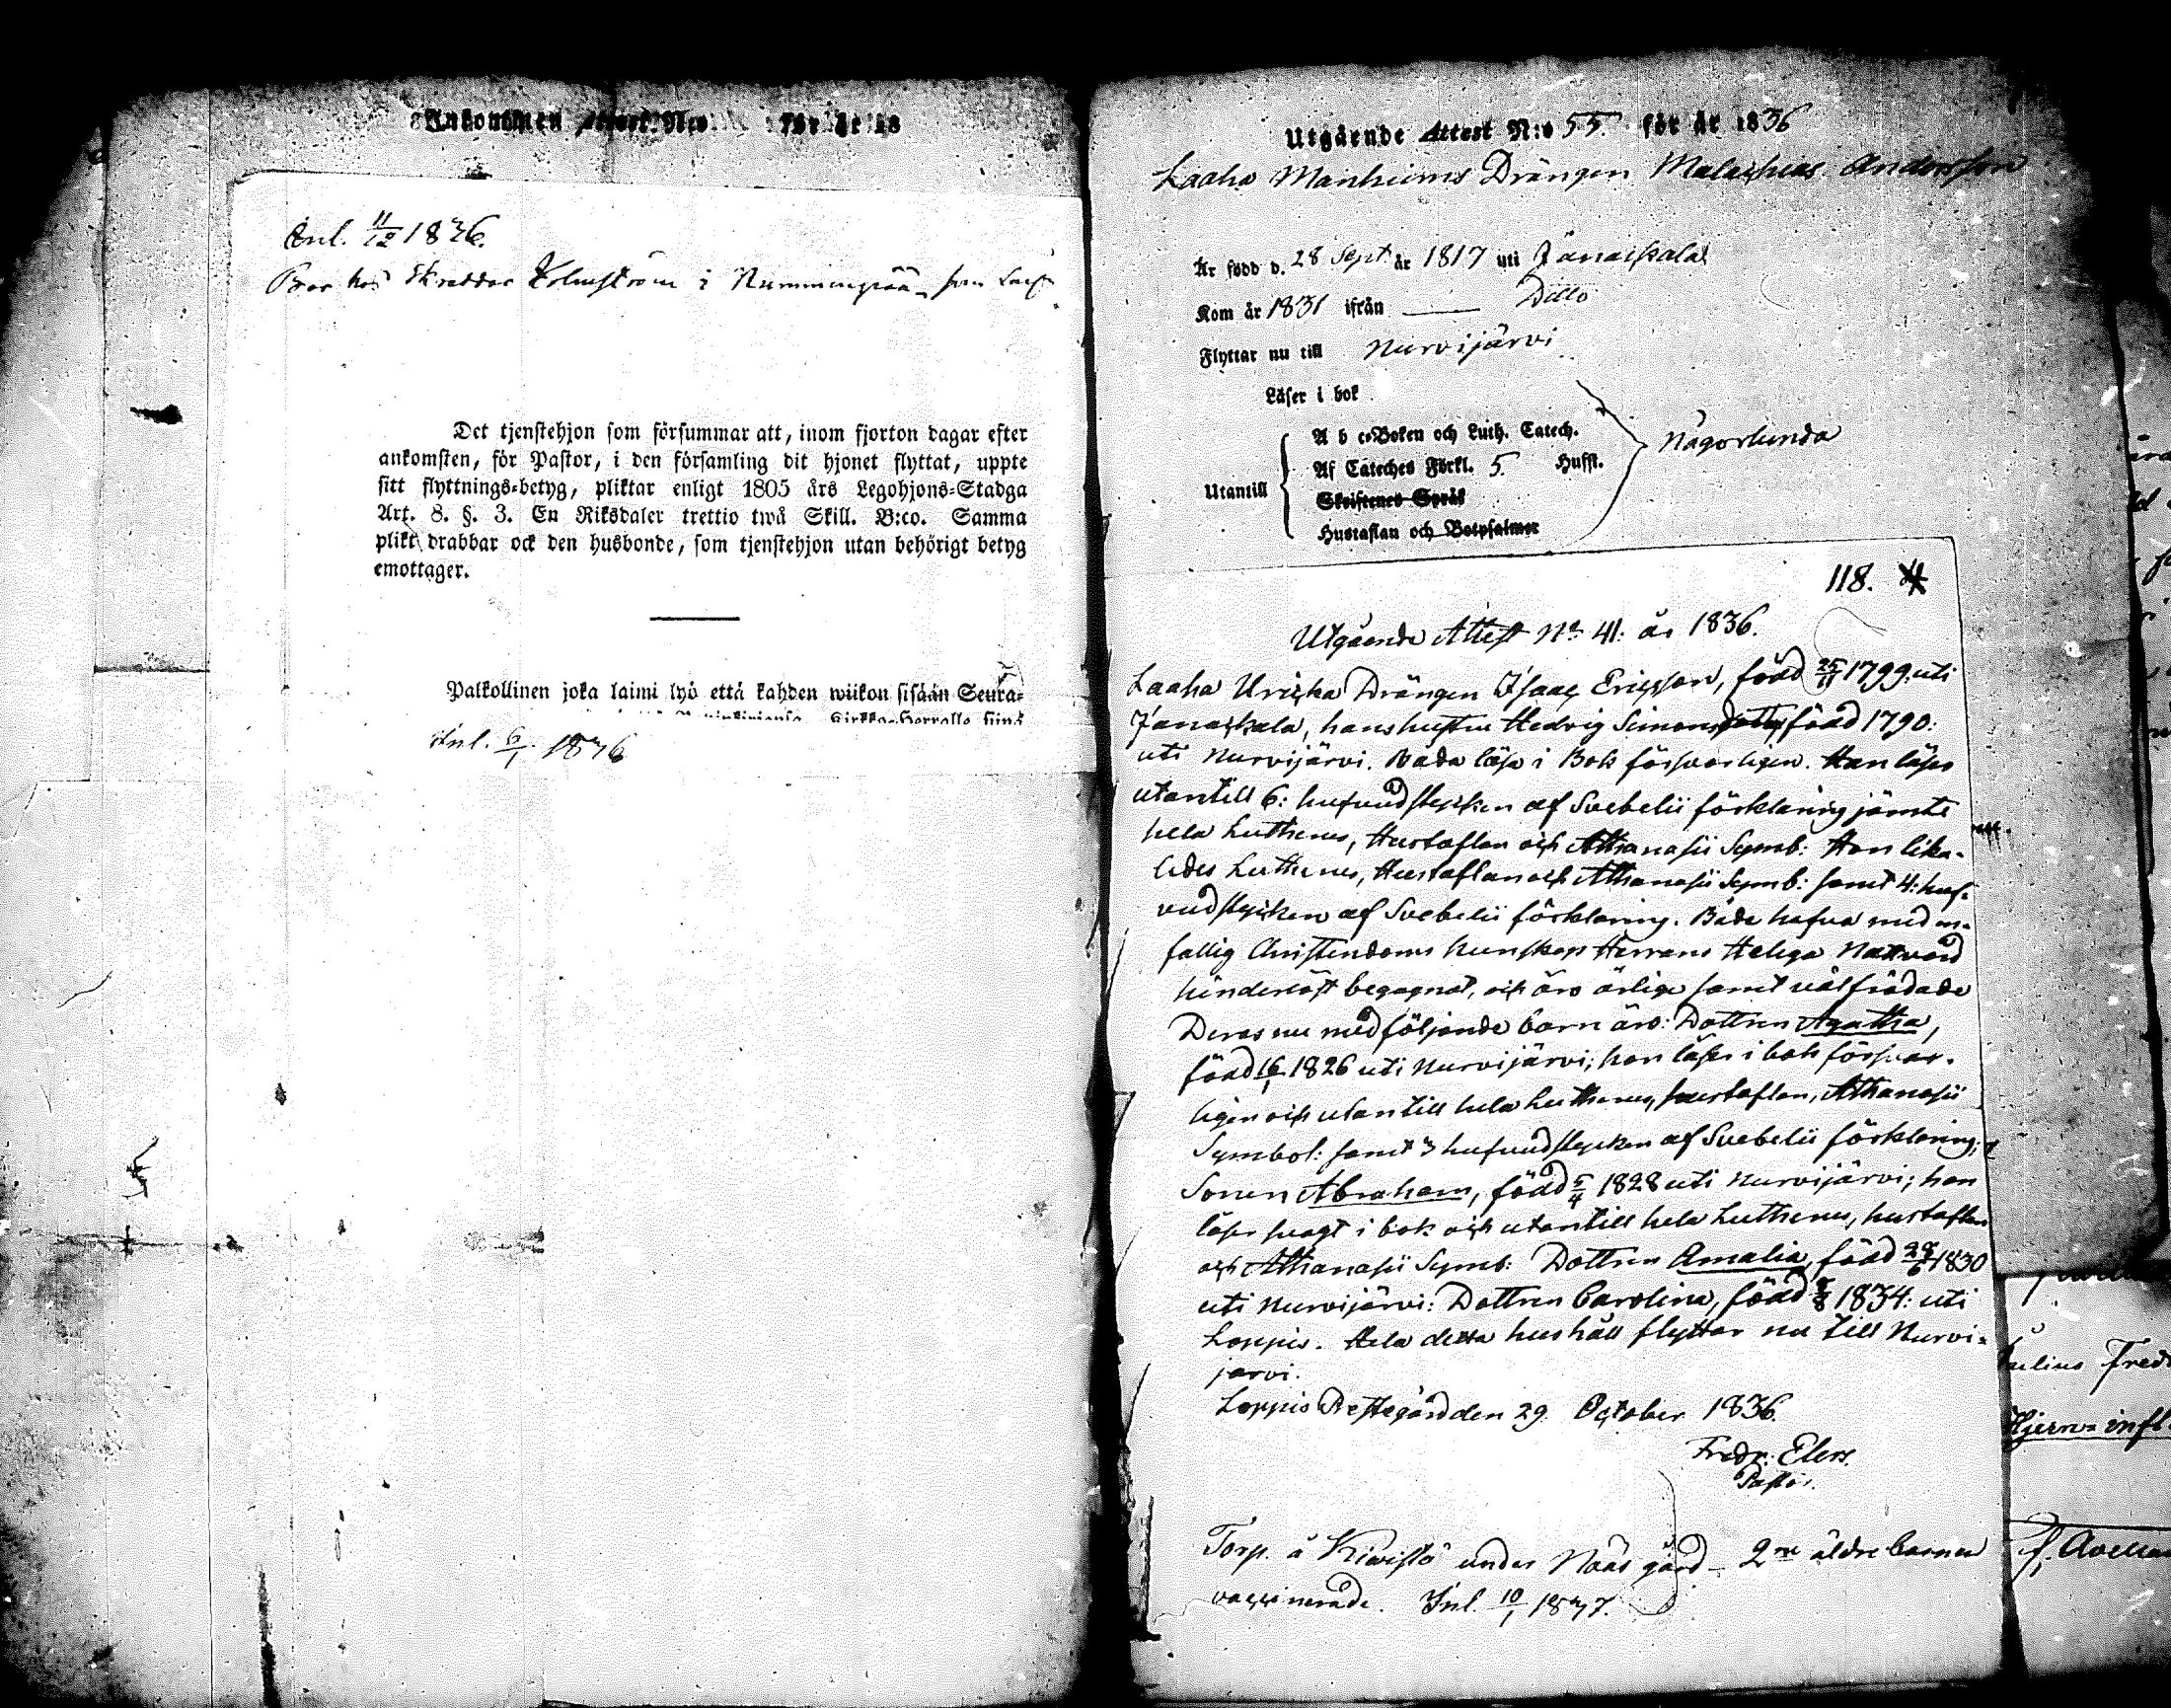 Ankommen Attest N:o för år 18
Anl. 11/12 1836.
Bor hos Skräddar Holmström i Nummenpää
Det tjenstehjon som försummar att, inom fjorton dagar efter
ankomsten, för Pastor, i den församling dit hjonet flyttat, uppte
sitt flyttnings-betyg, pliktar enligt 1805 års Legohjons-Stadga
Art. 8. §. 3. En Riksdaler trettio twå Skill. B:co. Samma
plikt drabbar ock den husbonde, som tjenstehjon utan behörigt betyg
emottager.
Palkollinen joka laimi lyö että kahden wiikon sisään Seura-
Anl. 6/1 1836
Utgående Attest N:o 55. för år 1836
Laaha Manheims Drängen Malachias Andersson
Är född d. 28 Sept år 1817 uti Janackala
Kom år 1831 ifrån —— Ditto
Flyttar nu till Nurvijärvi
Läser i bok
A b c-Boken och Luth. Catech.
Af Cateches Förkl. 5. Hufst.
Någorlunda
Utantill
Skriftenes Språk
Hustaflan och Botpsalmer
118.
Utgående Attest No 41: år 1836.
Laaha Uricka Drängen Isaac Ericsson, född 25/11 1799. uti
Janackala, hans hustru Hedvig Simonsdotter född 1790:
uti Nurvijärvi. Båda läsa i Bok försvarligen. Han läser
utantill 6: hufvudstycken af Svebelii förklaring jämte
hela Lutherus, Hustaflan och Athanasii Symb: Hon lika-
ledes Lutherus, Hustaflan och Athanasii Symb: samt 4: huf-
vudstycken af Svebelii förklaring. Både hafva med en-
fallig Christendoms kunskap Herrans Heliga Nattvard
hinderlöst begagnat, och äro ärliga samt välfrädade
Deras nu medföljande barn äro: Dottren Agatha,
född 16/1 1826 uti Nurvijärvi; hon läser i bok försvar-
ligen och utantill hela Lutherus, hustaflan, Athanasii
Symbol: samt 3 hufvudstycken af Svebelii förklaring;
Sonen Abraham, född 5/4 1828 uti Nurvijärvi; han
läser svagt i bok och utantill hela Lutherus, hustaflan
och Athanasii Symb: Dottren Amalia, född 28/6 1830
uti Nurvijärvi: Dottren Carolina, född 8/8 1834: uti
Loppis. Hela detta hushåll flyttar nu till Nurvi-
järvi.
Loppis Prestegård den 29. October 1836.
Fredr. Elers.
Pastor.
Torp. å Kiwistö under Nääs gård – 2ne äldre barnen
vaccinerade. Inl. 10/1 1837.
Julius Fred
Hjern-infl.